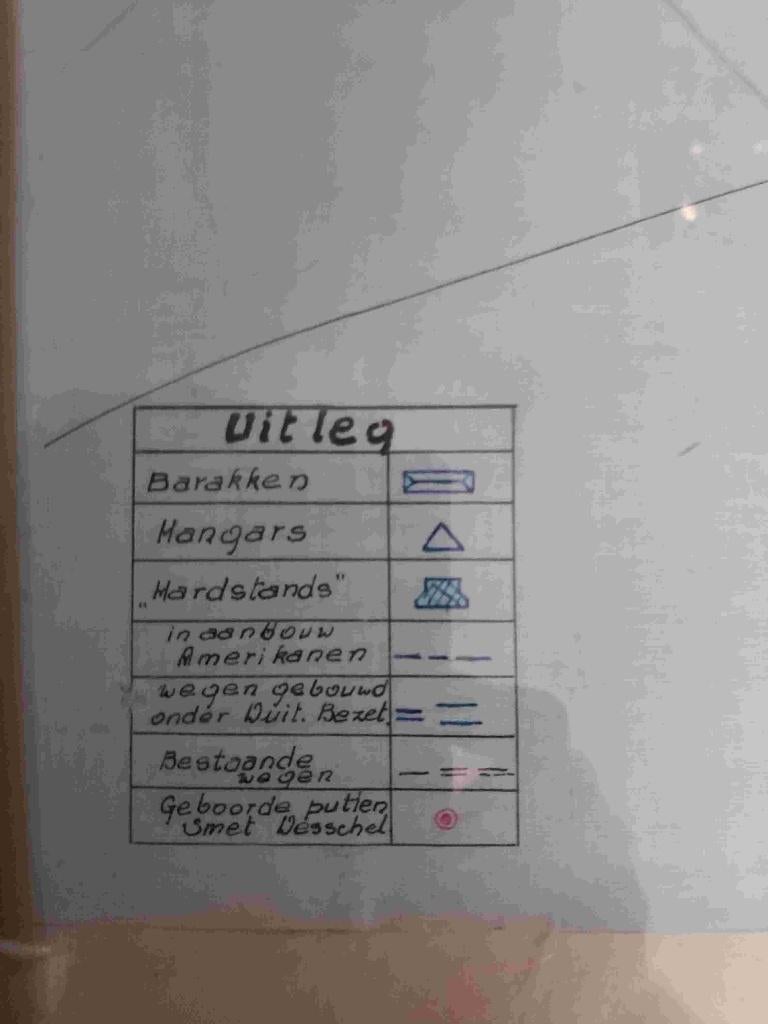 Uitleg
Barakken
Hangars
„Hardstands"
in aanbouw
Amerikanen
wegen gebouwd
onder Duit. Bezet.
Bestaande
wegen
Geboorde putten
Smet Desschel